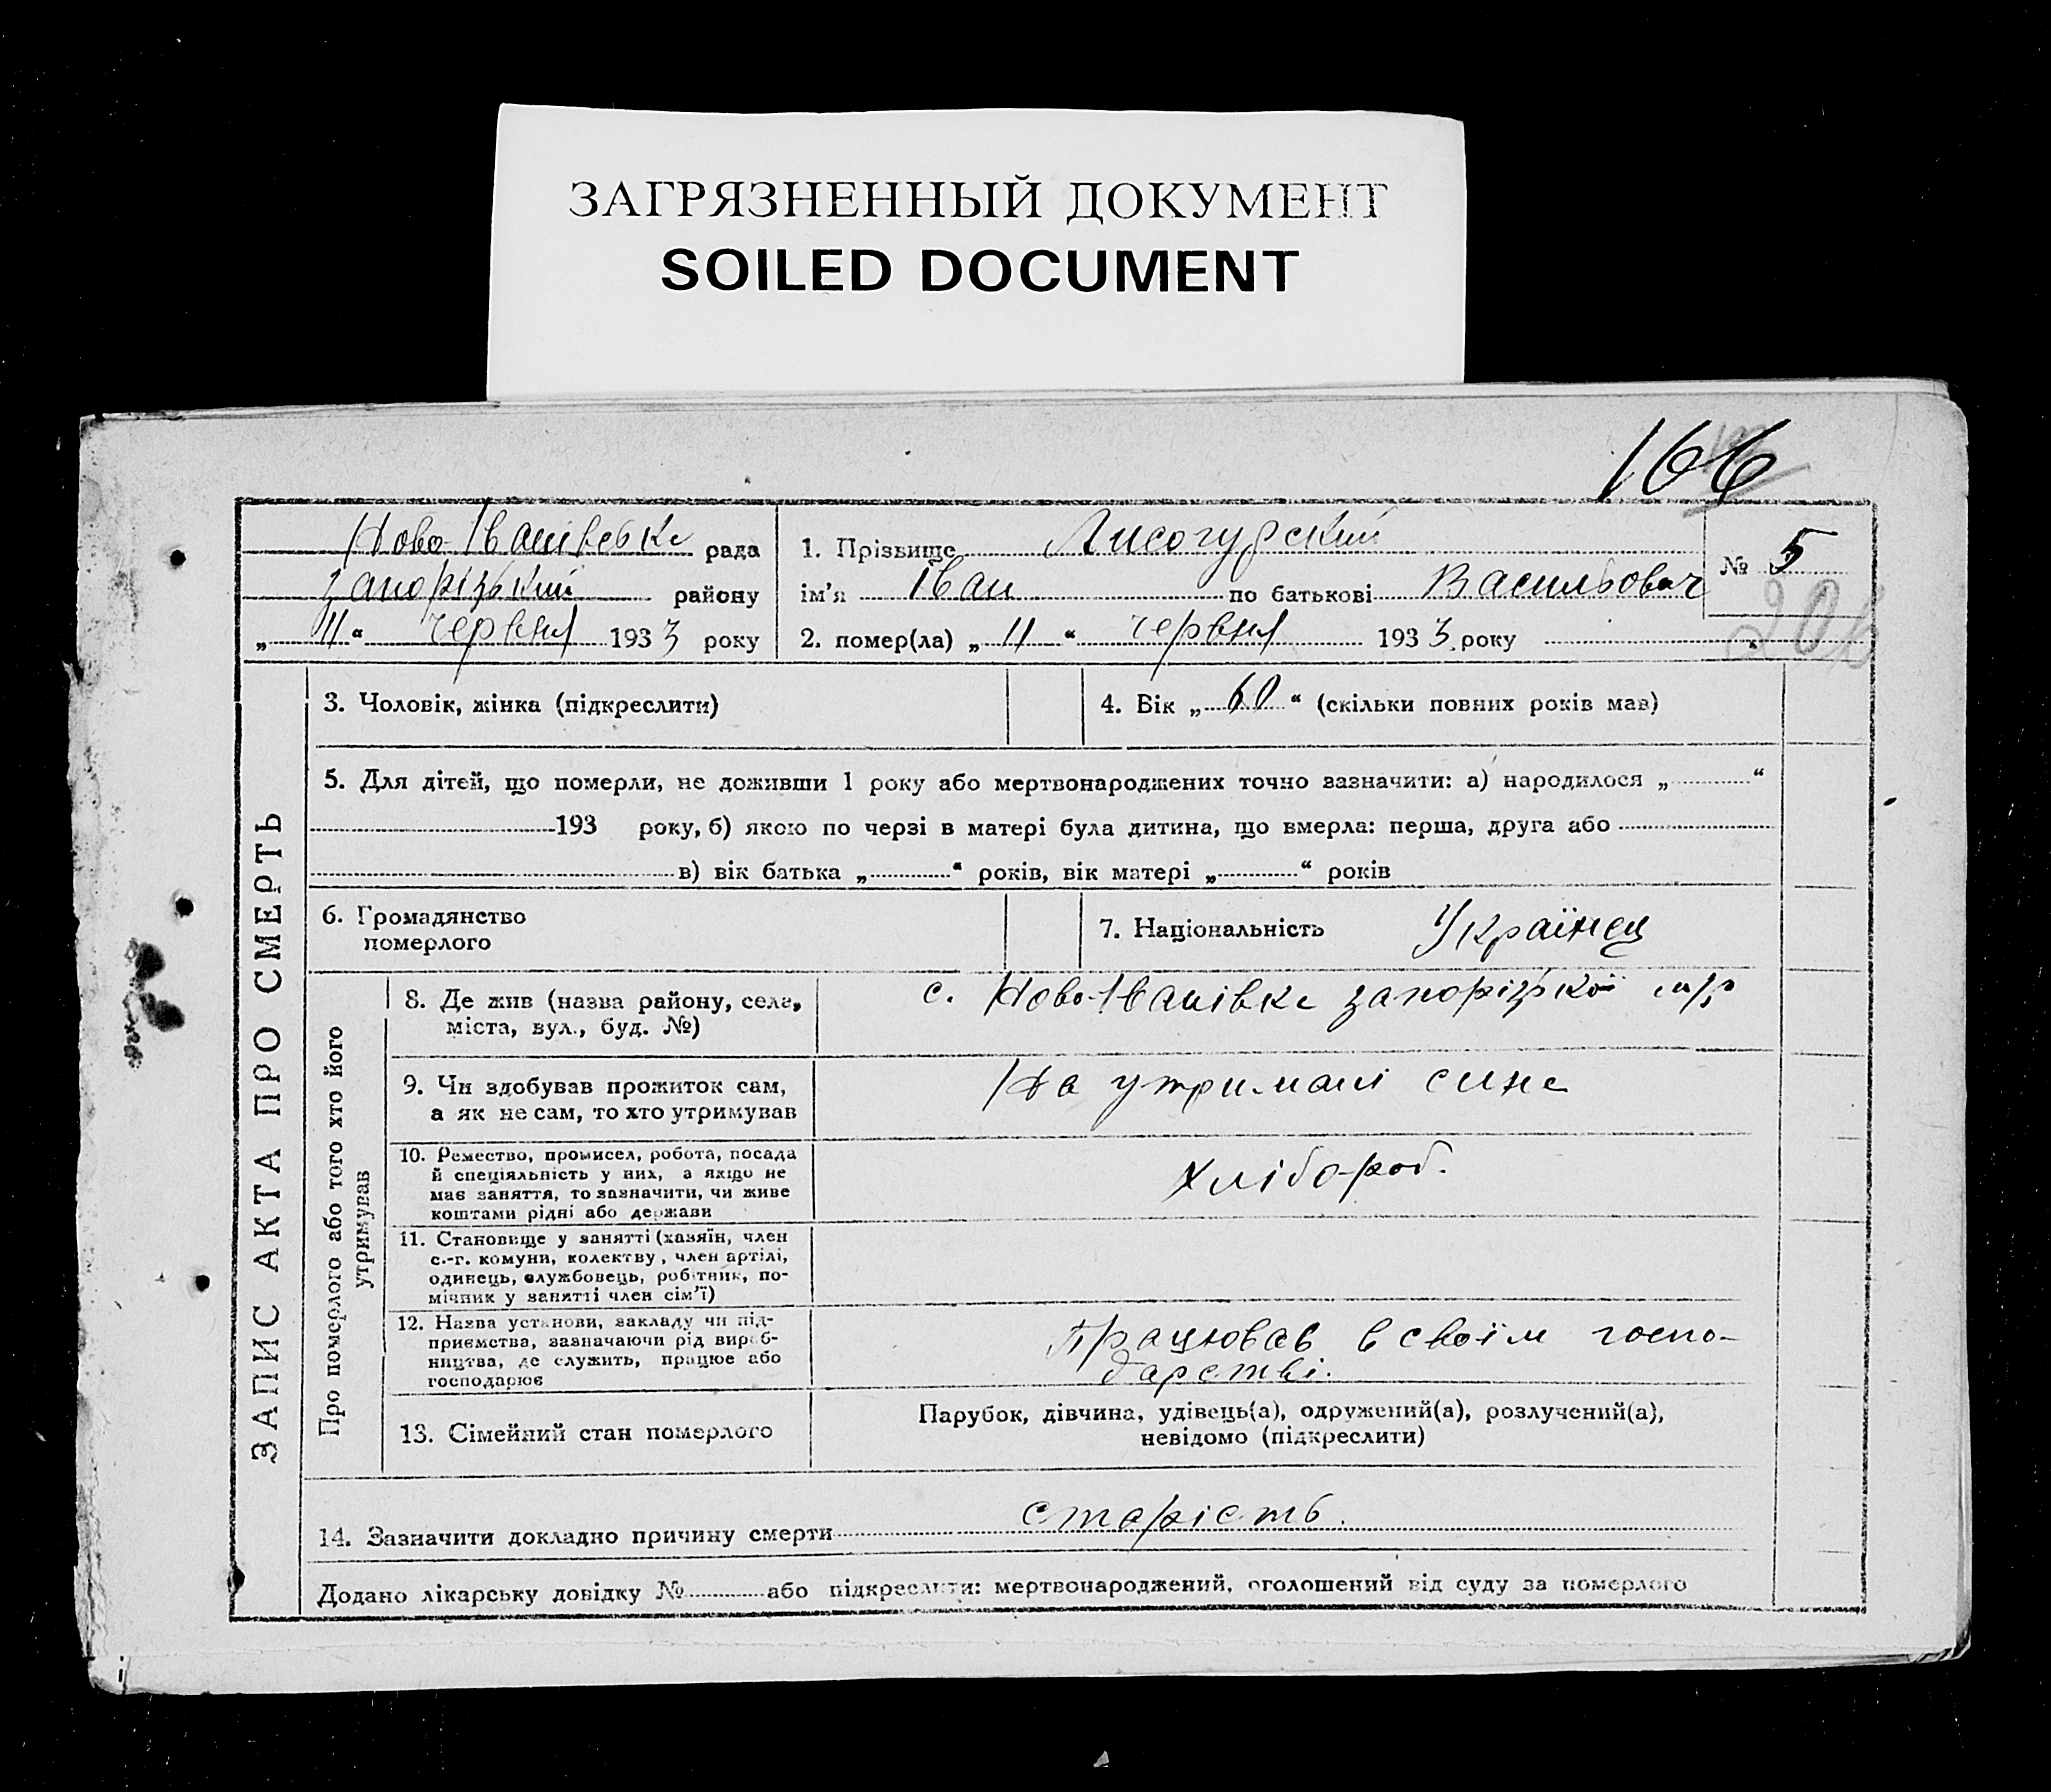 ЗАГРЯЗНЕННЫЙ ДОКУМЕНТ
SOILED DOCUMENT
166
Ново-Іванівська рада
Запорізький району
„ 11 “ червня 1933 року
1. Прізвище Лисогурский
ім’я Іван по батькові Васильович
2. помер(ла) „ 11 “ червня 1933 року
№ 5
ЗАПИС АКТА ПРО СМЕРТЬ
3. Чоловік, жінка (підкреслити)
4. Вік „ 60 “ (скільки повних років мав)
5. Для дітей, що померли, не доживши 1 року або мертвонароджених точно зазначити: а) народилося „ “
193 року, б) якою по черзі в матері була дитина, що вмерла: перша, друга або
в) вік батька „ “ років, вік матері „ “ років
6. Громадянство
померлого
7. Національність Українец
Про померлого або того хто його
утримував
8. Де жив (назва району, села,
міста, вул., буд. №)
с. Ново-Іванівка Запорізької
9. Чи здобував прожиток сам,
а як не сам, то хто утримував
На утримані сина
10. Ремество, промисел, робота, посада
й спеціяльність у них, а якщо не
має заняття, то зазначити, чи живе
коштами рідні або держави
хлібороб.
11. Становище у занятті (хазяїн, член
с.-г. комуни, колективу, член артілі,
одинець, службовець, робітник, по-
мічник у занятті член сім’ї)
12. Назва установи, закладу чи під-
приємства, зазначаючи рід вироб-
ництва, де служить, працює або
господарює
Працював в своїм госпо-
дарстві.
13. Сімейний стан померлого
Парубок, дівчина, удівець(а), одружений(а), розлучений(а),
невідомо (підкреслити)
14. Зазначити докладно причину смерти старість.
Додано лікарську довідку № або підкреслити: мертвонароджений, оголошений від суду за померлого